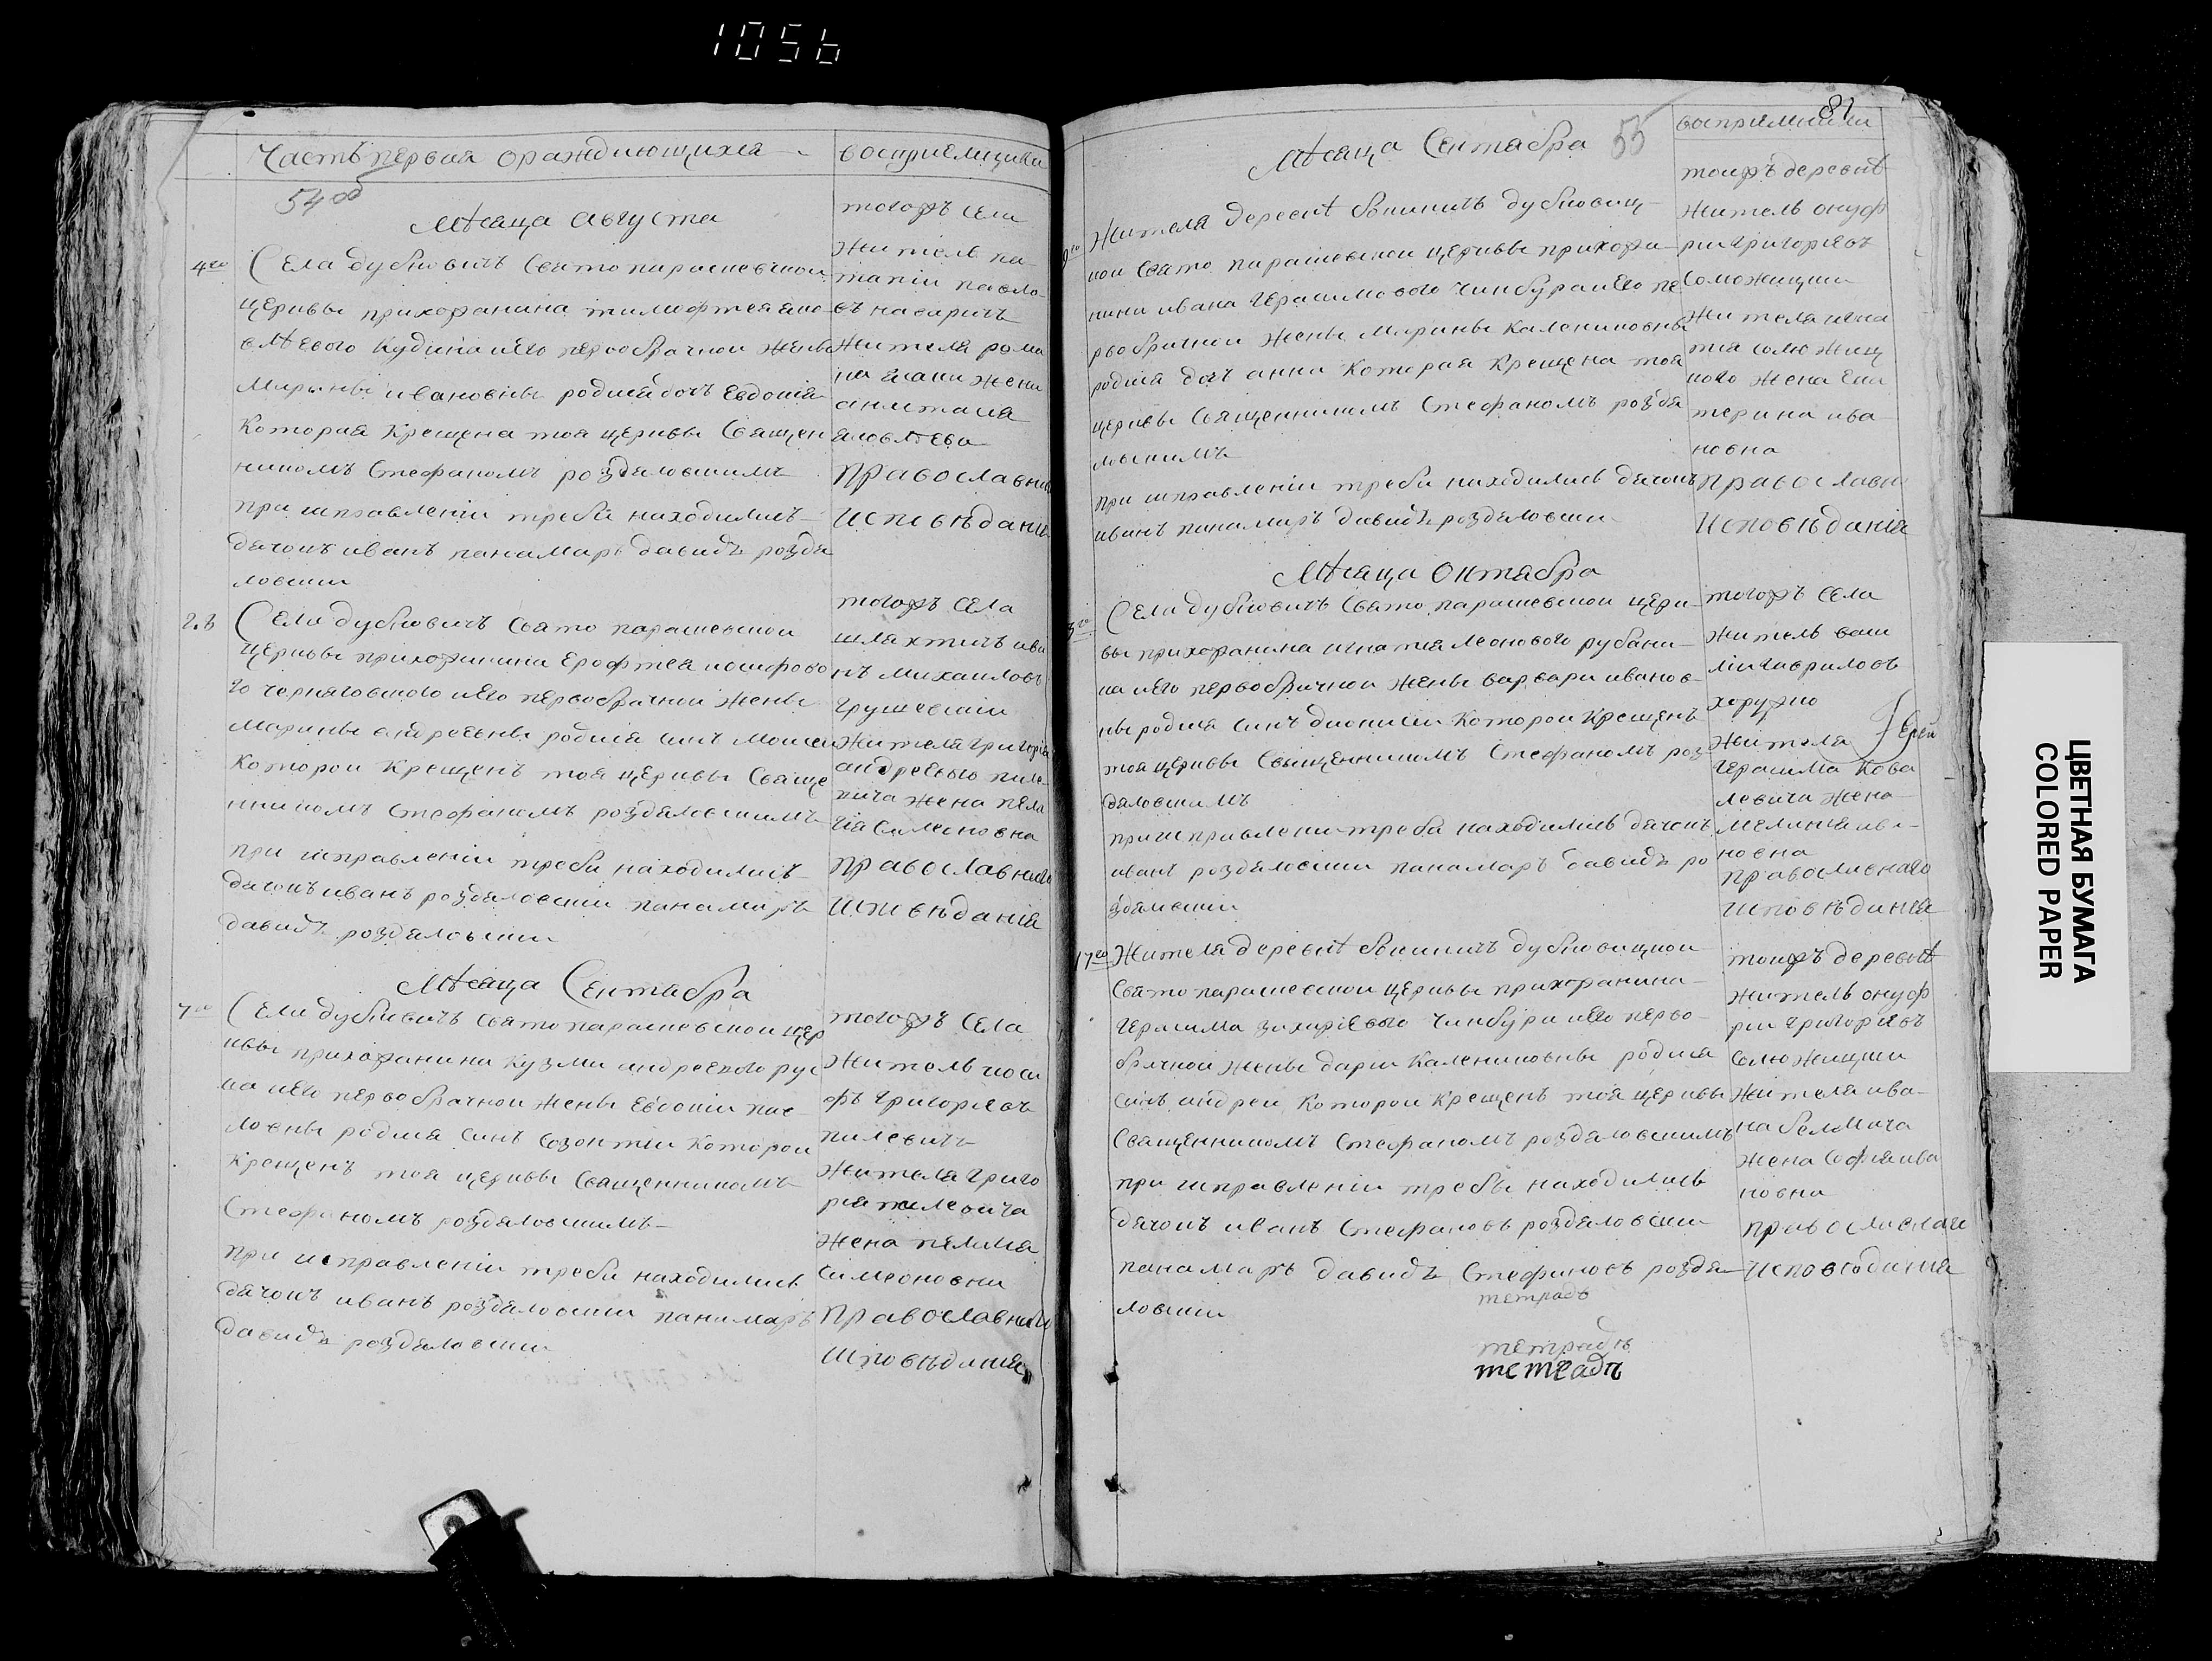 1056
Часть первая о раждиющихся
восприемники
54 об
Мѣсяца августа
4го Села дубновичъ Свято парасневскои
церквы прихожанина тимофтея яко
влѣвого Кудина иего первобрачной Жены
Марыны ивановны родися дочъ Евдокия
Которая Крещена тоя церквы Священ
никомъ Стефаномъ роздяловскимъ
при исправленіи треби находились
дячокъ иванъ панамаръ давидъ роздя
ловски
тогожъ Села
Житель па-
тапіи павло-
въ насаричъ
Жителя рома
на жена
анастасия
яковлѣва
православнаго
исповѣдания
28 Села дубновичъ Свято парасневскои
церквы прихожанина Ерофтея иосифово
го черняговского иего первобрачной Жены
Марины андреевны родися синъ Моисеи
Которои Крещенъ тоя церквы Свяще
нникомъ Стефаномъ роздяловскимъ
при исправленіи треби находились
дячокъ иванъ роздяловски панамаръ
давидъ роздяловски
тогожъ Села
шляхтичъ ива
нъ Михаиловъ
грушевскіи
Жителя Григорія
андреевого пиле
вича жена пела
гія Симеоновна
православнаго
исповѣдания
Мѣсяца Сентабра
7го Села дубновичъ Свято парасневскои цер
квы прихожанина Кузми андреевого рус
на иего первобрачной Жены Евдокіи пав-
ловны родися синъ Созонтіи Которои
Крещенъ тоя церквы Священникомъ
Стефаномъ роздяловскимъ
при исправленіи треби находились
дячокъ иванъ роздяловски панамаръ
давидъ роздяловски
тогожъ Села
Житель иоси
фъ Григориевъ
пилевичъ
Жителя Григо
рія пилевича
Жена пелагия
Симеоновни
православнаго
исповѣдания
81
Мѣсяца Сентабра
55
восприемники
Жителя деревнѣ дубновиц-
кои Свято парасневскои церквы прихожа-
нина ивана Герасимового Чинбура иего пе
рвобрачной Жены Марины Калениковны
родися дочъ анна Которая Крещена тоя
церквы Священникомъ Стефаномъ роздя
ловскимъ
при исправленіи треби находились дячокъ
иванъ панамаръ давидъ роздяловски
тоижъ деревнѣ
Житель онуф
рии Григориевъ
Соможицки
Жителя игна
тія
Жена Ека
терина ива
новна
православн
исповѣданія
Мѣсяца Октабра
Села дубновичъ Свято парасневскои церк-
вы прихожанина игнатия Леонового рубани-
на иего первобрачной Жены варвари иванов-
ны родися синъ дионисіи Которои Крещенъ
тоя церквы Священникомъ Стефаномъ роз
дяловскимъ
при исправлении треби находились дячокъ
иванъ роздяловски панамаръ давидъ ро
здяловски
тогожъ Села
Житель васи
ліи Гавриловъ
хоружо
Жителя
Герасима Кова
левича Жена
Мелания ива-
новна
православнаго
исповѣдания
Іерей
17го Жителя деревнѣ дубновицкои
Свято парасневскои церквы прихожанина
Герасима захариевого Чинбура иего перво-
брачной Жены дарии Калениковны родися
синъ андреи Которои Крещенъ тоя церквы
Священникомъ Стефаномъ роздяловскимъ
при исправленіи требы находились
дячокъ иванъ Стефановъ роздяловски
панамаръ давидъ Стефановъ роздя
ловски
тоижъ деревнѣ
Житель онуф
рии Григориевъ
Соможицки
Жителя ива-
на белмача
Жена София ива
новна
православная
исповѣдания
тетрадь
тетрадь
тетрадь
ЦВЕТНАЯ БУМАГА
COLORED PAPER